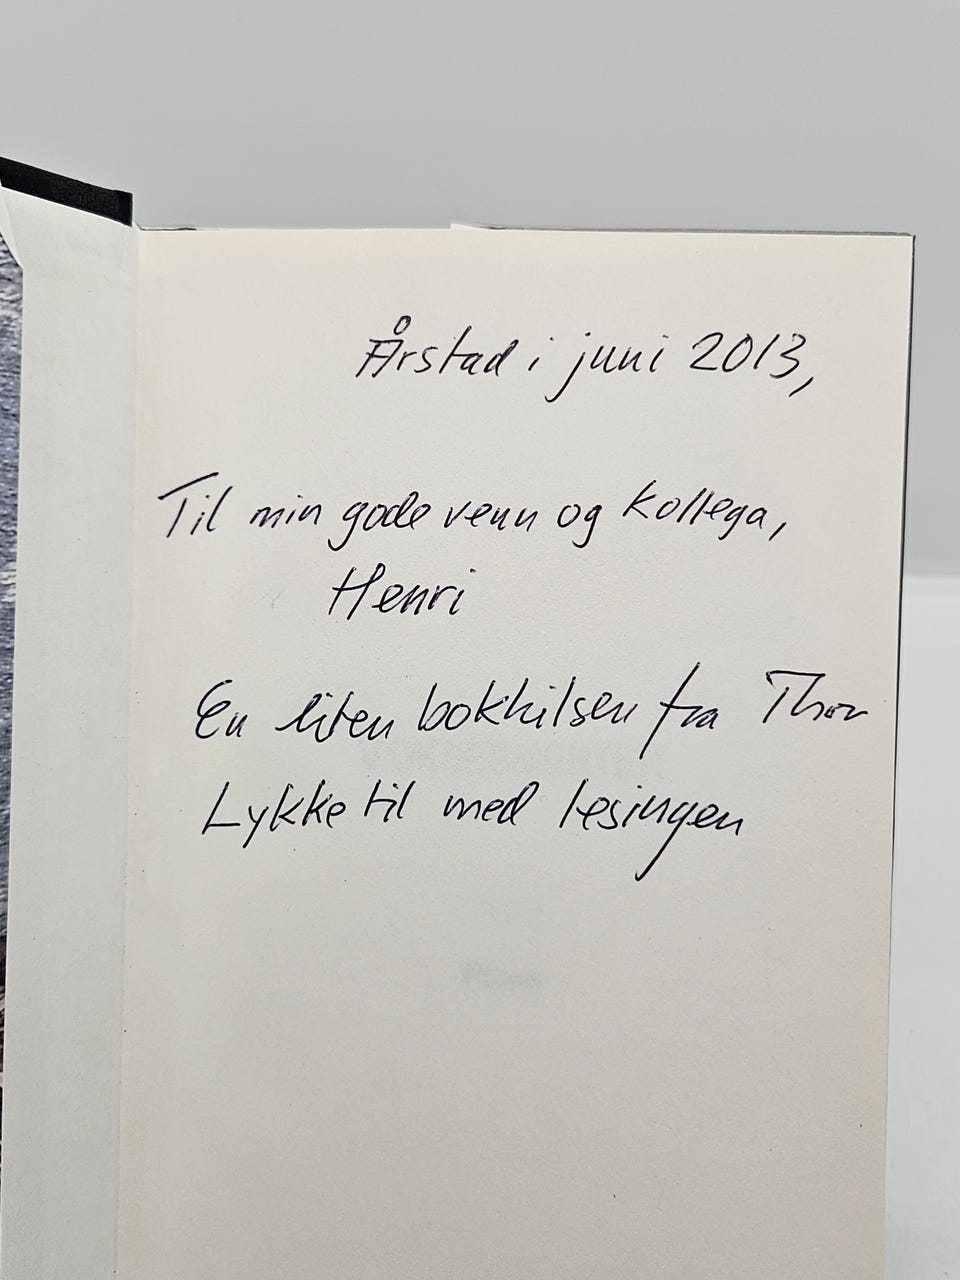 Årstad i juni 2013,
Til min gode venn og kollega,
Henri
En liten bokhilsen fra Thor
Lykke til med lesingen